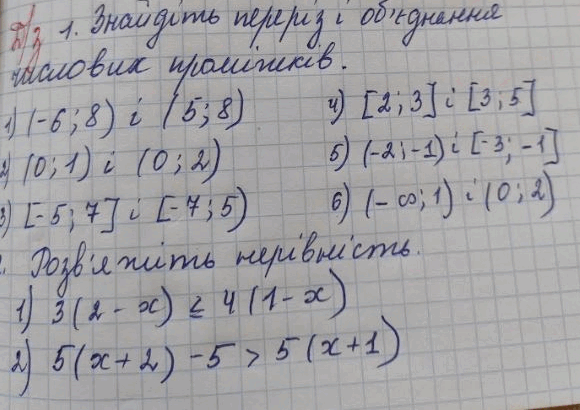 Д/з 1. Знайдіть переріз і об'єднання
числових проміжків.
1) (-6; 8) і (5; 8) 4) [2; 3] і [3; 5]
2) (0; 1) і (0; 2) 5) (-2; -1) і [-3; -1]
3) [-5; 7] і [-7; 5) 6) (-∞; 1) і (0; 2)
2. Розв'яжіть нерівність.
1) 3(2 - x) ≤ 4(1 - x)
2) 5(x + 2) - 5 > 5(x + 1)